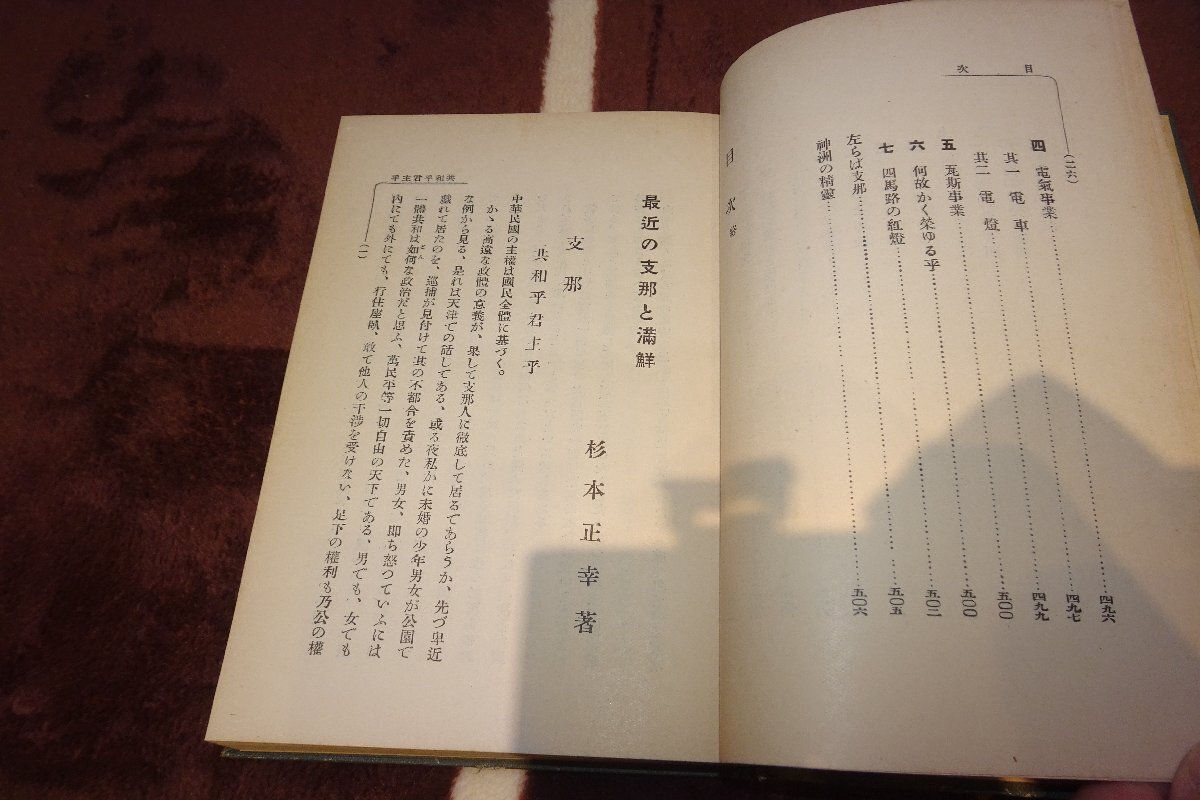 目次
(二六)
四 電氣事業……四九六
其一 電車……四九七
其二 電燈……四九九
五 瓦斯事業……五〇〇
六 何故かく榮ゆる乎……五〇〇
七 四馬路の紅燈……五〇二
左らば支那……五〇五
神洲の精靈……五〇六
目次 終
最近の支那と滿鮮
杉本正幸著
支那
共和乎君主乎
中華民國の主權は國民全體に基づく。
かゝる高遠な政體の意義が、果して支那人に徹底して居るであらうか、先づ卑近
な例から見る、是れは天津での話しである、或る夜私かに未婚の少年男女が公園で
戯れて居たのを、巡捕が見付けて其の不都合を責めた、男女、即ち怒つていふには
一體共和は如何な政治だと思ふ、萬民平等一切自由の天下である、男でも、女でも
内にても外にても、行住座臥、敢て他人の干渉を受けない、足下の權利も乃公の權
共和乎君主乎
(一)